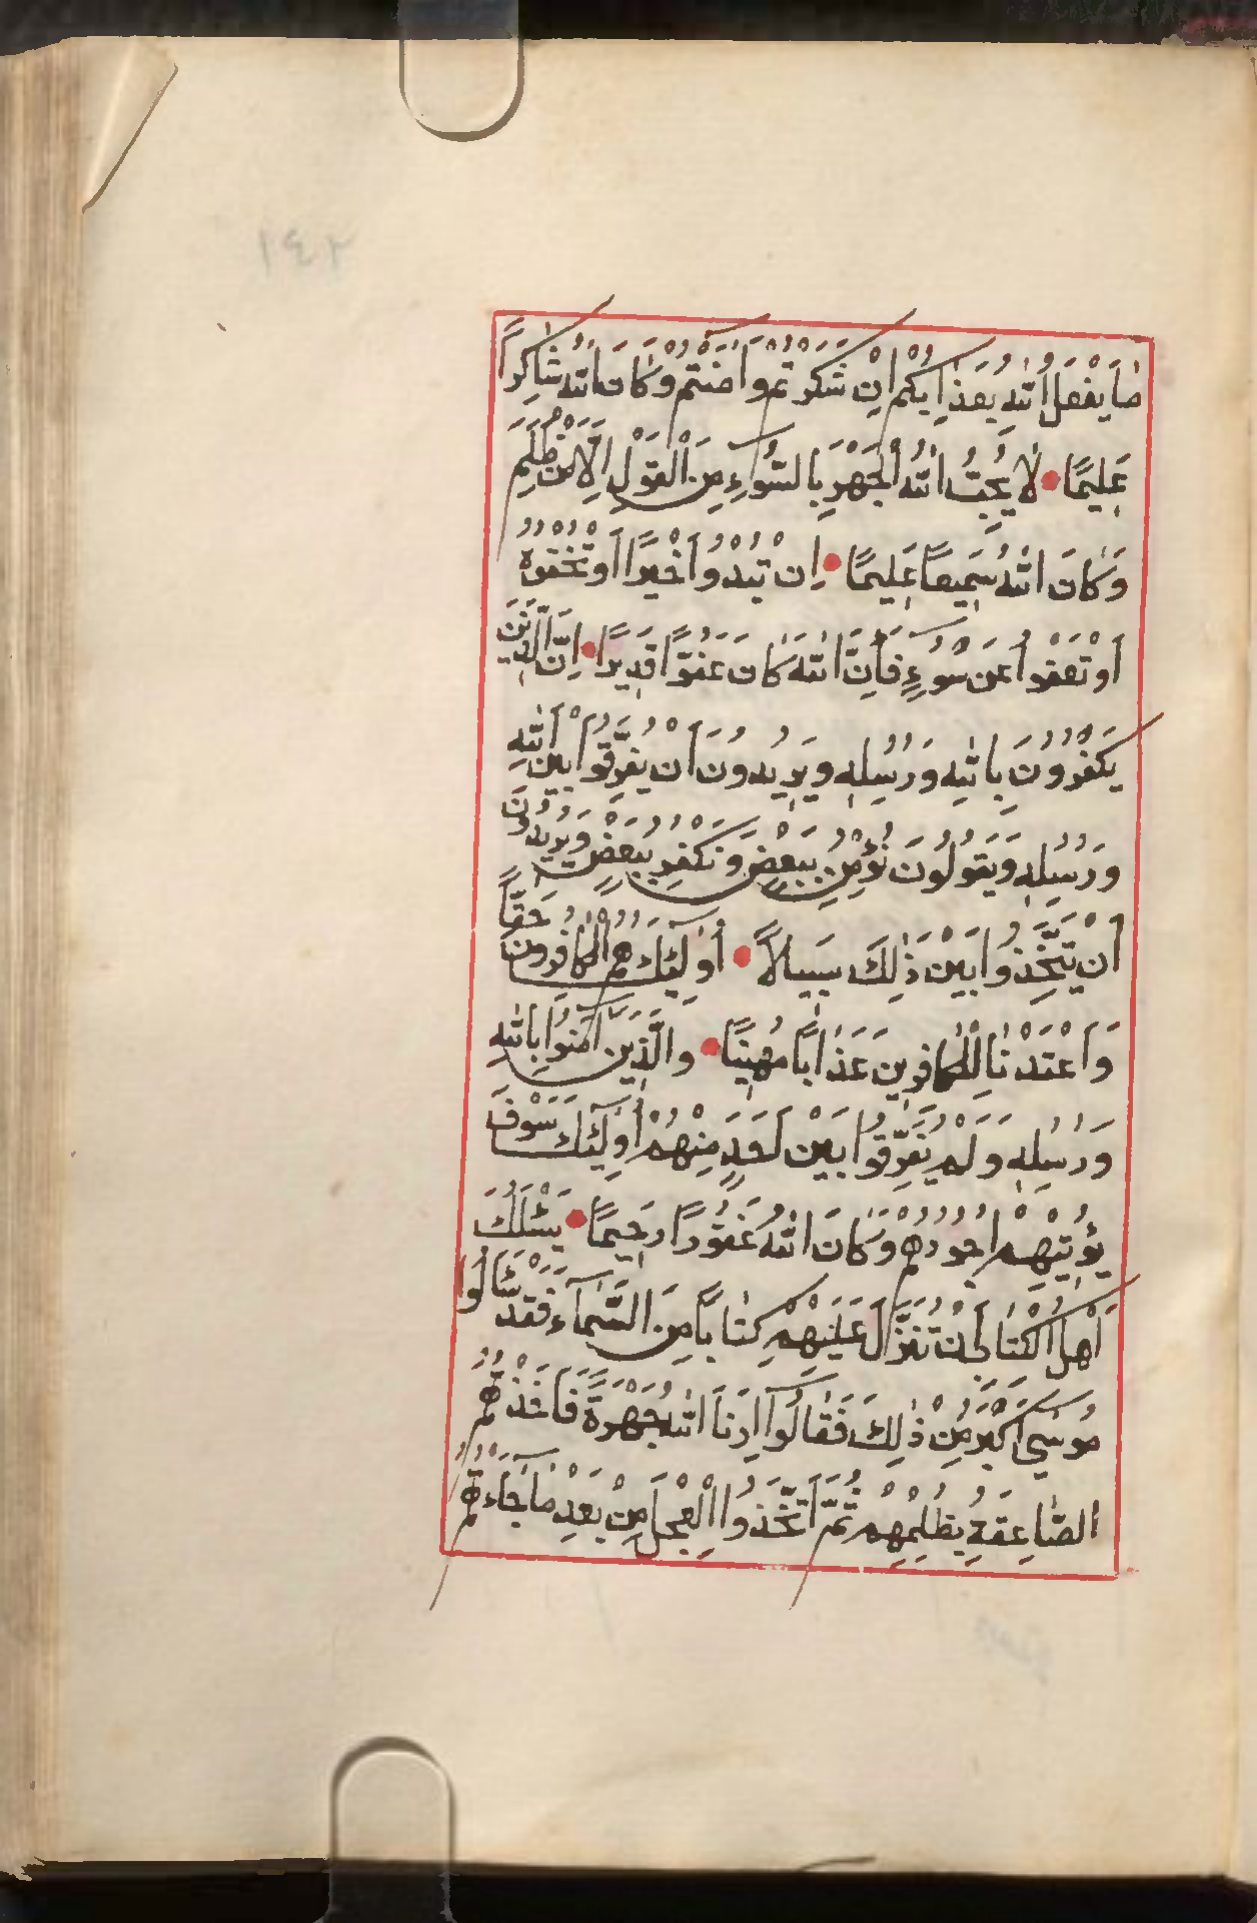 مَا يَفْعَلُ اللّٰهُ بِعَذَابِكُمْ اِنْ شَكَرْتُمْ وَاٰمَنْتُمْ وَكَانَ اللّٰهُ شَاكِرًا
عَلِيمًا لَا يُحِبُّ اللّٰهُ الْجَهْرَ بِالسُّوۤءِ مِنَ الْقَوْلِ اِلَّا مَنْ ظُلِمَ
وَكَانَ اللّٰهُ سَمِيعًا عَلِيمًا اِنْ تُبْدُوا خَيْرًا اَوْ تُخْفُوهُ
اَوْ تَعْفُوا عَنْ سُوۤءٍ فَاِنَّ اللّٰهَ كَانَ عَفُوًّا قَدِيرًا اِنَّ الَّذِينَ
يَكْفُرُونَ بِاللّٰهِ وَرُسُلِهِ وَيُرِيدُونَ اَنْ يُفَرِّقُوا بَيْنَ اللّٰهِ
وَرُسُلِهِ وَيَقُولُونَ نُؤْمِنُ بِبَعْضٍ وَنَكْفُرُ بِبَعْضٍ وَيُرِيدُونَ
اَنْ يَتَّخِذُوا بَيْنَ ذٰلِكَ سَبِيلًا اُولٰۤئِكَ هُمُ الْكَافِرُونَ حَقًّا
وَاَعْتَدْنَا لِلْكَافِرِينَ عَذَابًا مُهِينًا وَالَّذِينَ اٰمَنُوا بِاللّٰهِ
وَرُسُلِهِ وَلَمْ يُفَرِّقُوا بَيْنَ اَحَدٍ مِنْهُمْ اُولٰۤئِكَ سَوْفَ
يُؤْتِيهِمْ اُجُورَهُمْ وَكَانَ اللّٰهُ غَفُورًا رَحِيمًا يَسْـَٔلُكَ
اَهْلُ الْكِتَابِ اَنْ تُنَزِّلَ عَلَيْهِمْ كِتَابًا مِنَ السَّمَاۤءِ فَقَدْ سَئَالُوا
مُوسٰى اَكْبَرَ مِنْ ذٰلِكَ فَقَالُوۤا اَرِنَا اللّٰهَ جَهْرَةً فَاَخَذَتْهُمُ
الصَّاعِقَةُ بِظُلْمِهِمْ ثُمَّ اتَّخَذُوا الْعِجْلَ مِنْ بَعْدِ مَا جَاۤءَتْهُمُ
١٤٢